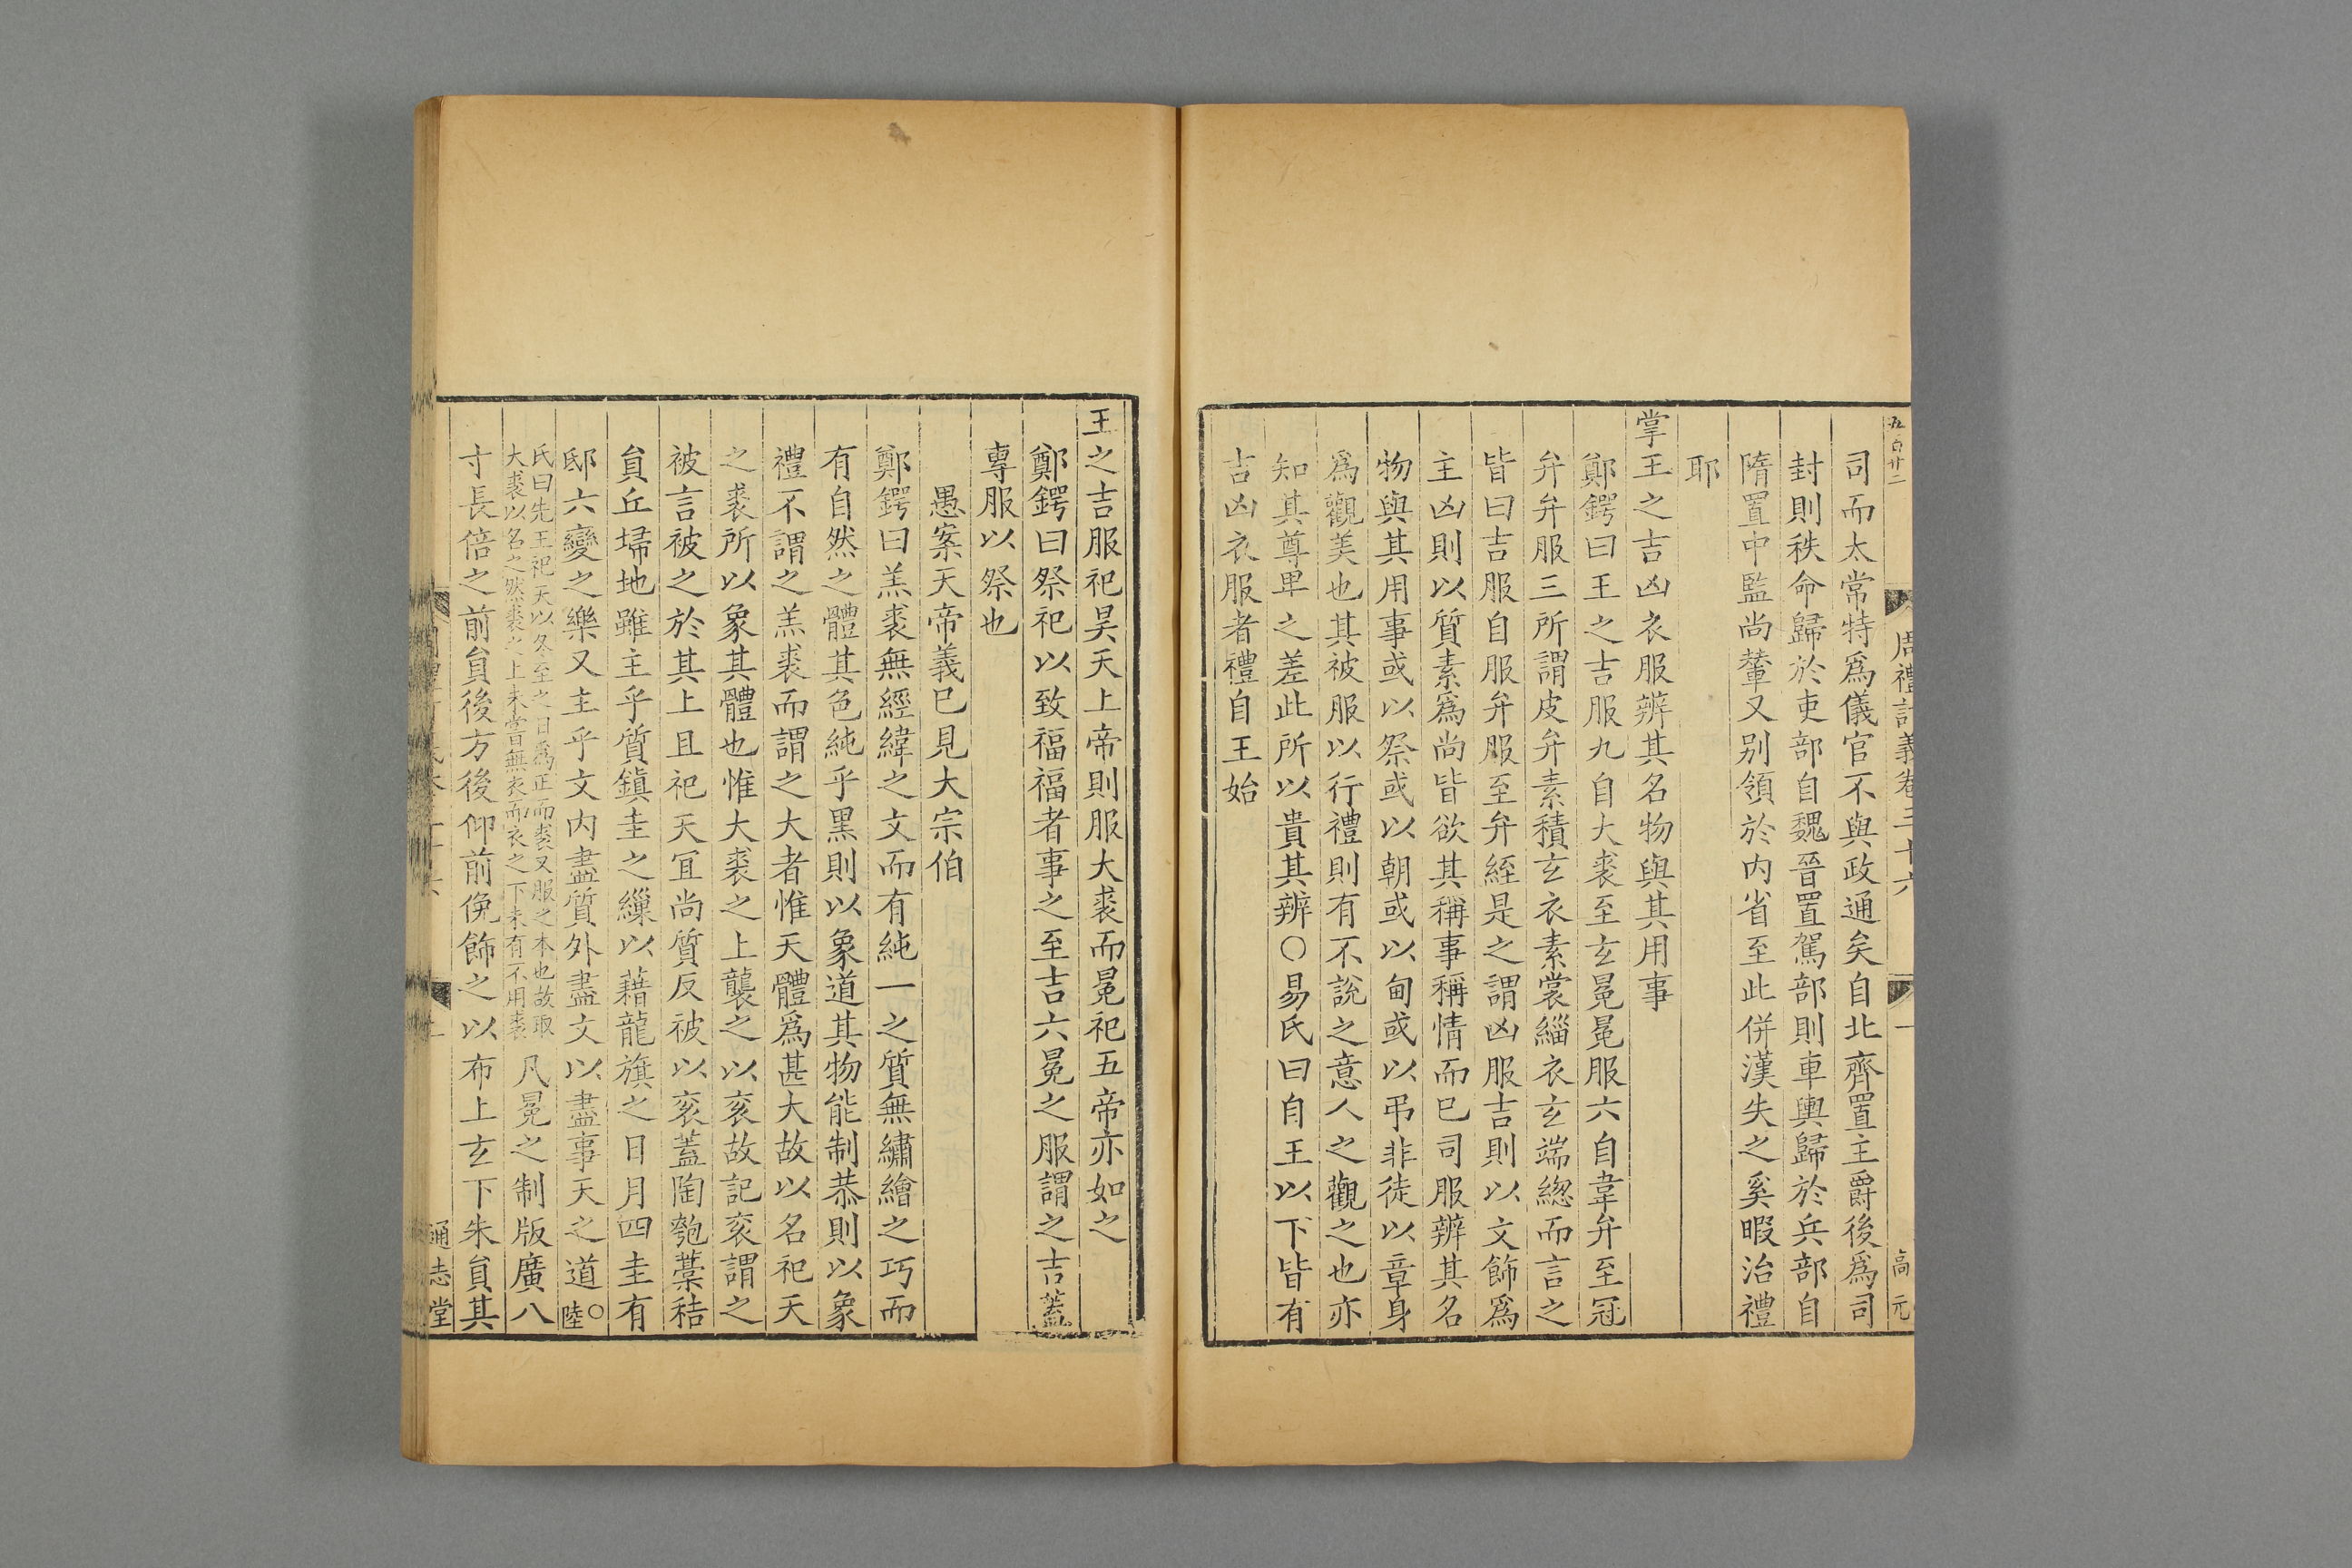 五百廿二
周禮訂義卷三十六
一
高元
司而太常特爲儀官不與政通矣自北齊置主爵後爲司
封則秩命歸於吏部自魏晉置駕部則車輿歸於兵部自
隋置中監尚輦又別領於内省至此併漢失之奚暇治禮
耶
掌王之吉凶衣服辨其名物與其用事
鄭鍔曰王之吉服九自大裘至玄冕冕服六自韋弁至冠
弁弁服三所謂皮弁素積玄衣素裳緇衣玄端緫而言之
皆曰吉服自服弁服至弁絰是之謂凶服吉則以文飾爲
主凶則以質素爲尚皆欲其稱事稱情而已司服辨其名
物與其用事或以祭或以朝或以甸或以弔非徒以章身
爲觀美也其被服以行禮則有不說之意人之觀之也亦
知其尊卑之差此所以貴其辨○易氏曰自王以下皆有
吉凶衣服者禮自王始
王之吉服祀昊天上帝則服大裘而冕祀五帝亦如之
鄭鍔曰祭祀以致福福者事之至吉六冕之服謂之吉蓋
專服以祭也
愚案天帝義已見大宗伯
鄭鍔曰羔裘無經緯之文而有純一之質無繡繪之巧而
有自然之體其色純乎黑則以象道其物能制恭則以象
禮不謂之羔裘而謂之大者惟天體爲甚大故以名祀天
之裘所以象其體也惟大裘之上襲之以衮故記衮謂之
被言被之於其上且祀天宜尚質反被以衮蓋陶匏藁秸
貟丘埽地雖主乎質鎮圭之繅以藉龍旗之日月四圭有
邸六變之樂又主乎文内盡質外盡文以盡事天之道○陸
氏曰先王祀天以冬至之日爲正而裘又服之本也故取
大裘以名之然裘之上未嘗無衣而衣之下未有不用裘
凡冕之制版廣八
寸長倍之前貟後方後仰前俛飾之以布上玄下朱貟其
通志堂